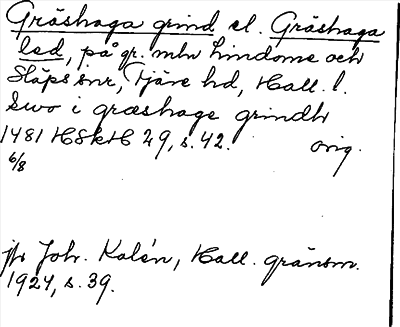 Gräshaga grind el. Gräshaga
led, på gr. mln Lindome och
Släps snr, Fjäre hd, Hall. l.
swo i græshage grindh
1481 HSkH 29, s. 42. orig.
6/8
jfr Joh. Kalén, Hall. gränsm.
1924, s. 39.